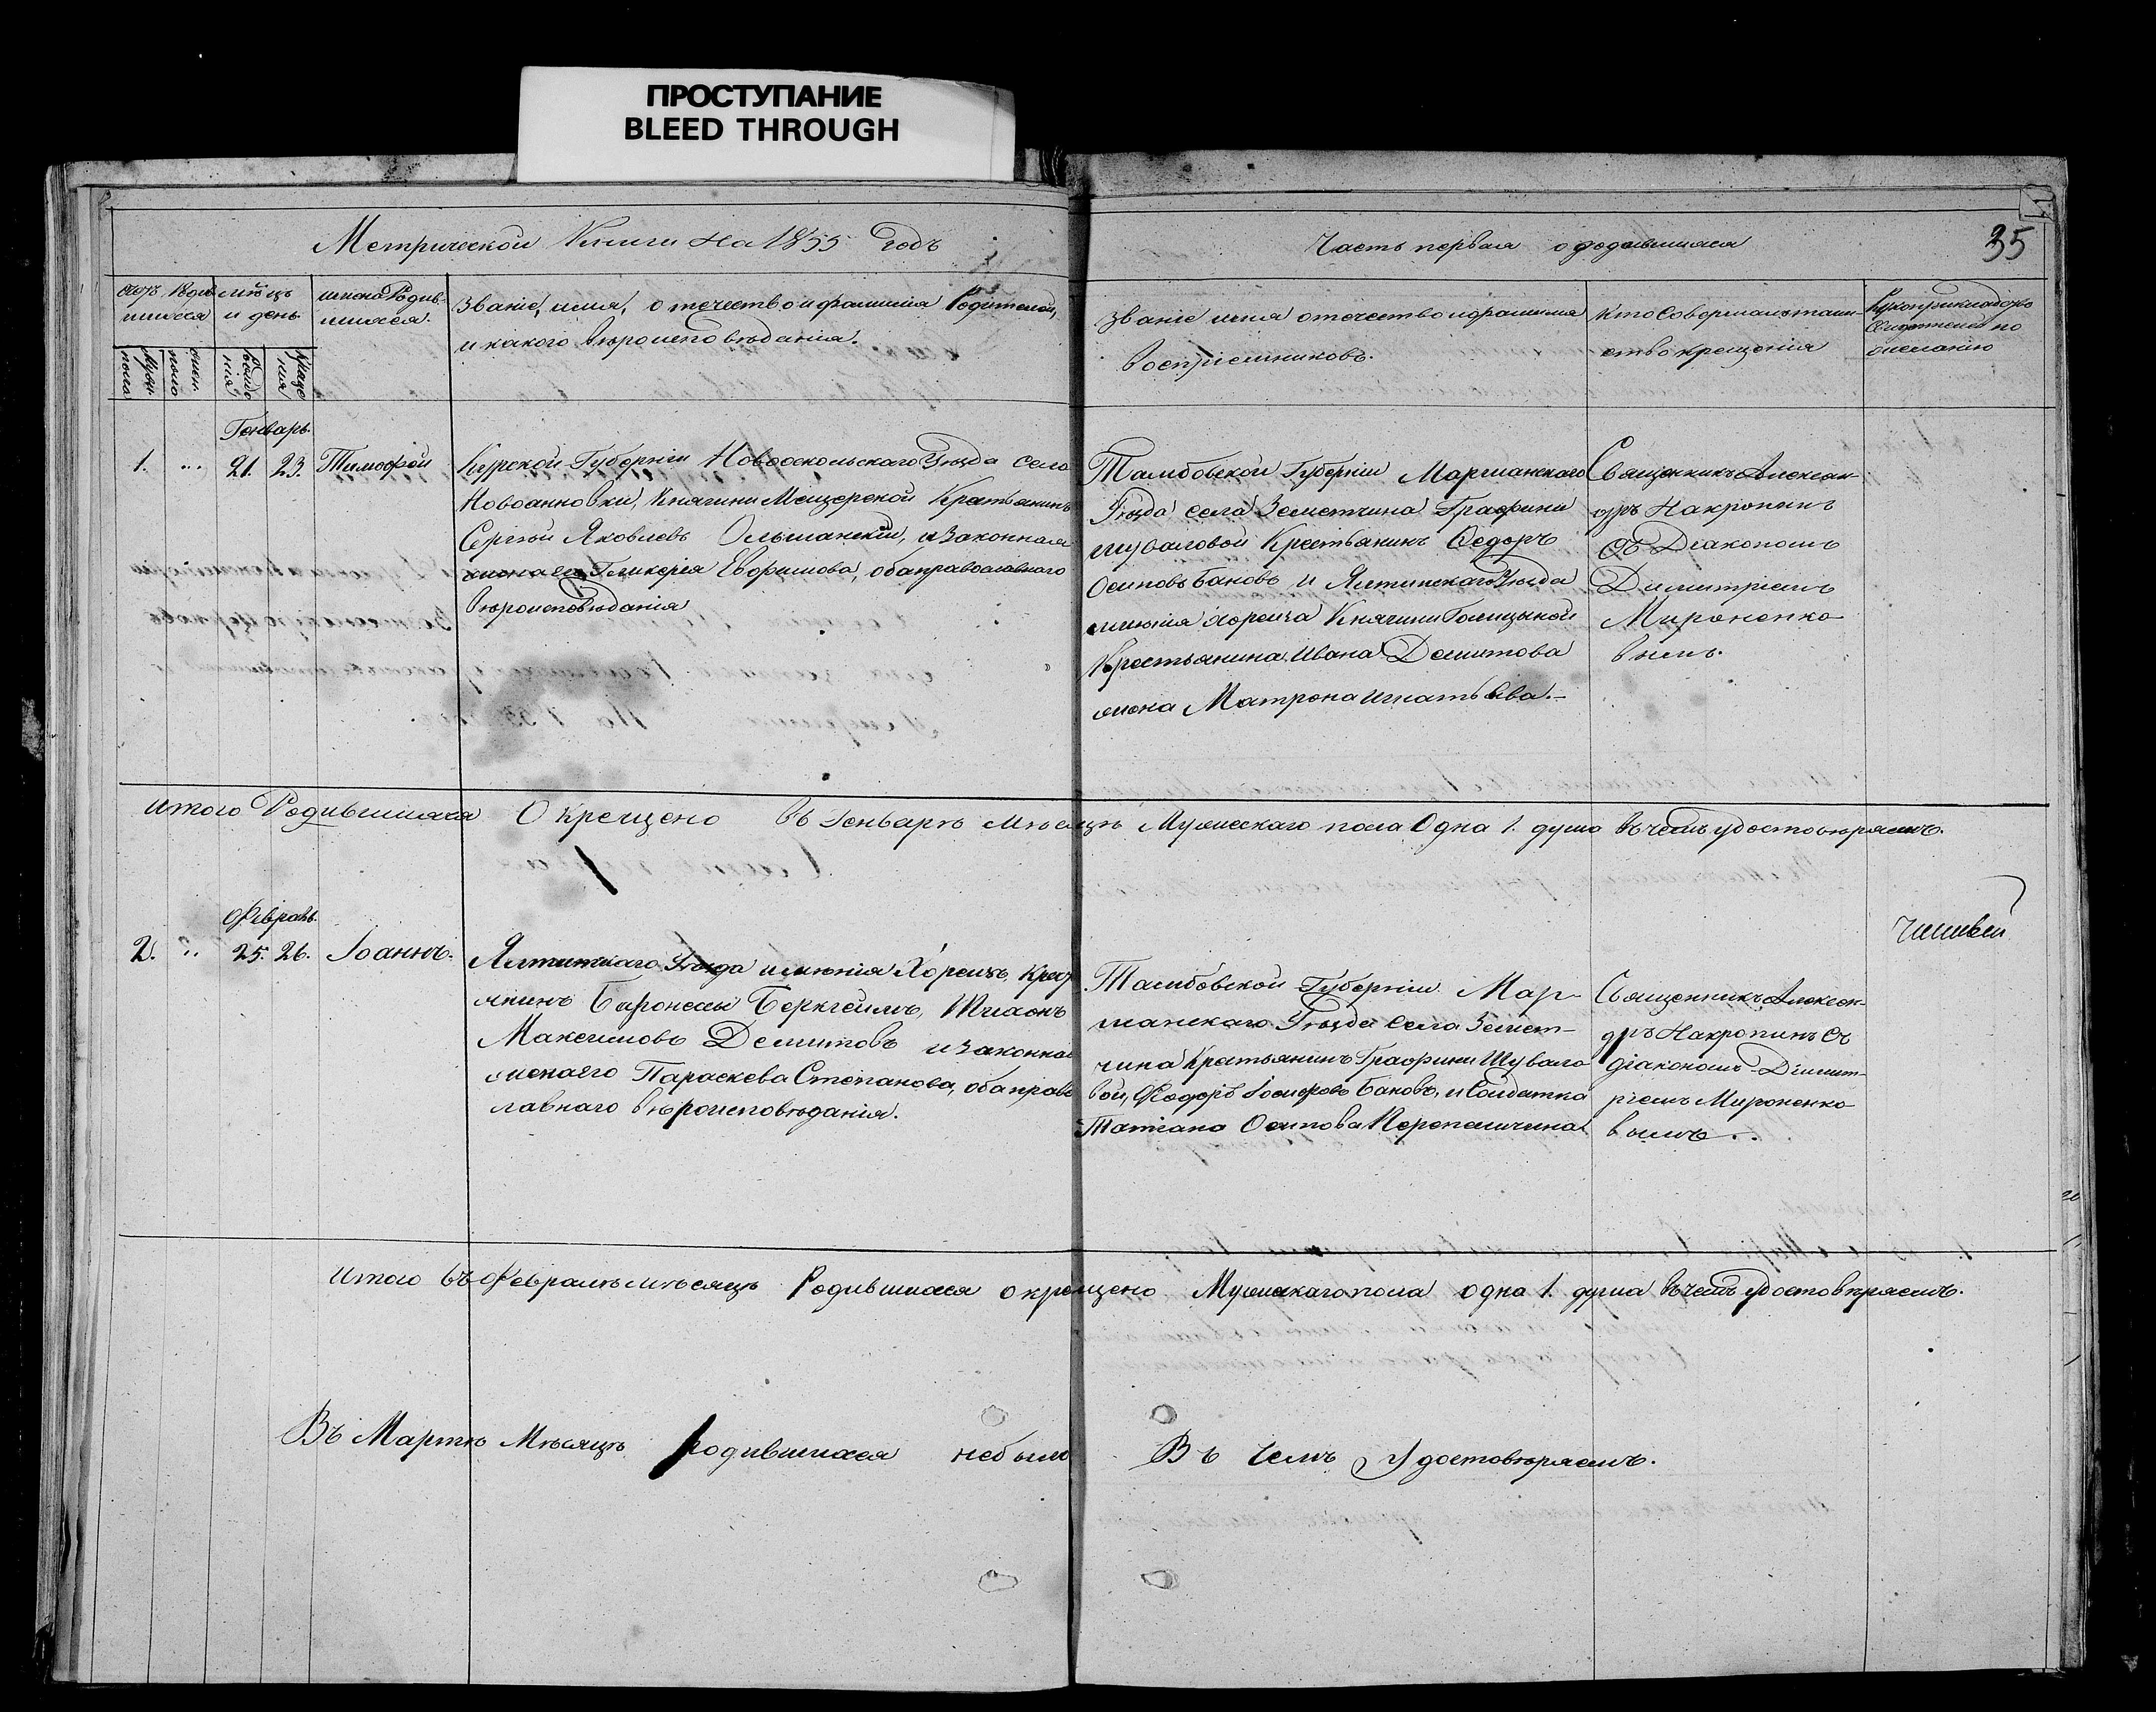 ПРОСТУПАНИЕ
BLEED THROUGH
Метрической Книги на 1855 годъ
Часть первая о родившихся
35
мѣсяцъ
и день
имена Родив-
шихся.
Званіе, имя, отечество и фамилія Родителей,
и какого вѣроисповѣданія.
Званіе имя отечество и фамилия
воспріемниковъ.
Кто совершалъ таин-
ство крещенія
Рукоприкладство
свидетелей по
желанію
Муж.
пола
жен.
пола
Рожде
нія
Креще
нія
Генварь.
1. " 21. 23. Тимофей
Курской Губерніи Новооскольскаго Уѣзда села
Новоанновки, Княгини Мещерской Крестьянинъ
Сергѣй Яковлевъ Ольшанскій, и законная
жена его Гликерія Ефимова, оба православнаго
вѣроисповѣданія
Тамбовской Губерніи Маршанскаго
Уѣзда села Земетчина Графини
Шуваловой Крестьянинъ Федоръ
Осиповъ Баковъ и Ялтинскаго Уѣзда
имѣнія Хореиза Княгини Голицыной
Крестьянина Ивана Демитова
жена Матрона Игнатьева.-
Священникъ Алексан-
дръ Накропинъ
Съ Діакономъ
Димитріемъ
Мироненко-
вымъ.
Итого Родившихся Окрещено въ Генваре мѣсяцѣ Мужескаго пола Одна 1. душа въ чемъ удостовѣряемъ.
Февраль.
2. " 25. 26. Іоаннъ.
Ялтинскаго Уѣзда имѣнія Хореизъ, Крест
янинъ Баронессы Беркгеимъ,
Максимовъ Демитовъ и законная
жена его Параскева Степанова, оба право
лавнаго вѣроисповѣданія.
Тамбовской Губерніи Мар-
шанскаго Уѣзда села Земет-
чина Крестьянинъ Графини Шувало
вой, Федоръ Баковъ, и Солдатка
Татіана Осипова
Священникъ Алексан-
дръ Накропинъ Съ
діакономъ Димит-
ріемъ Мироненко-
вымъ.
Итого въ Февралѣ мѣсяцѣ Родившихся окрещено Мужескаго пола одна 1. душа въ чемъ удостовѣряемъ.
Въ Мартѣ Мѣсяцѣ родившихся небыло Въ чемъ Удостовѣряемъ.